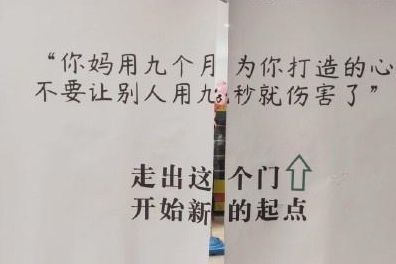 “你妈用九个月 为你打造的心
不要让别人用九秒就伤害了”
走出这个门
开始新的起点